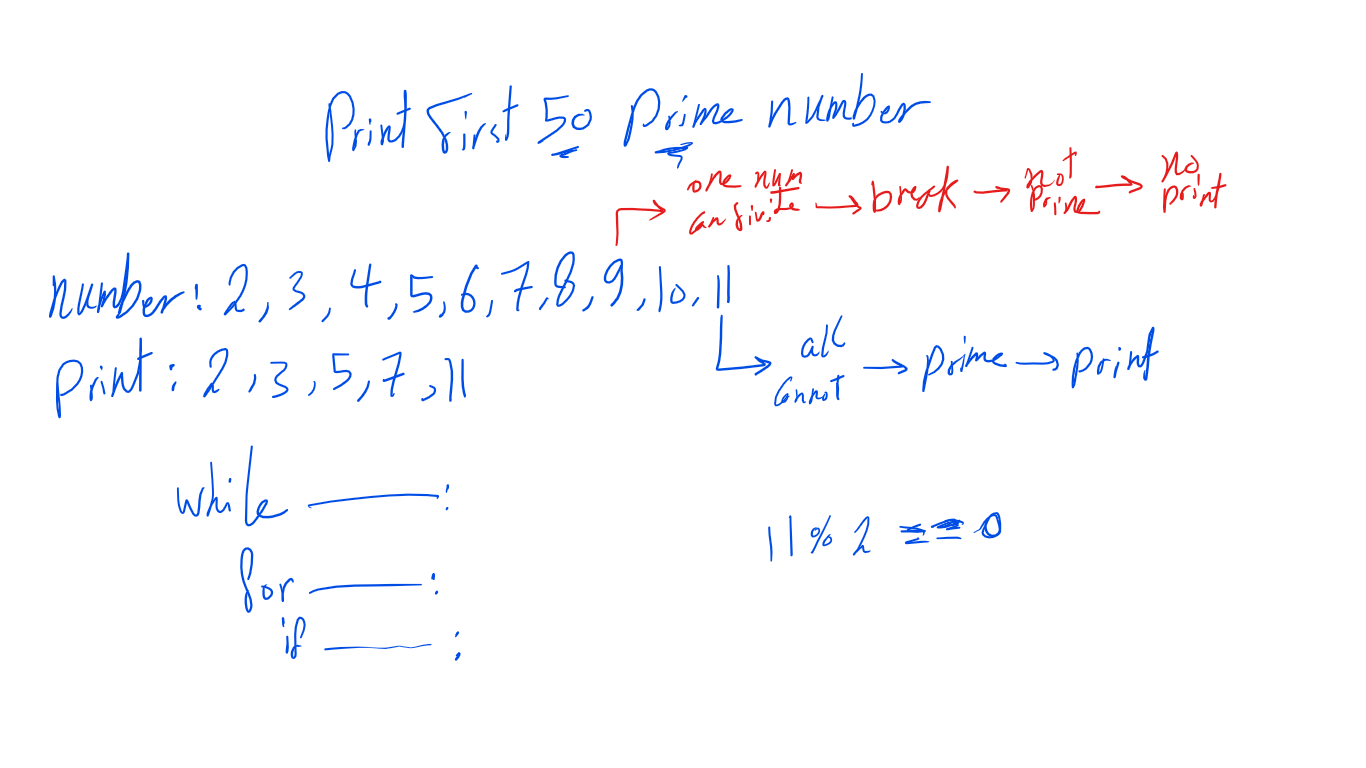 Print first 50 prime number
one num can divite → break → not prime → no print
number: 2, 3, 4, 5, 6, 7, 8, 9, 10, 11
print: 2, 3, 5, 7, 11
all cannot → prime → print
while ———:
for ———:
if ———:
11 % 2 == 0